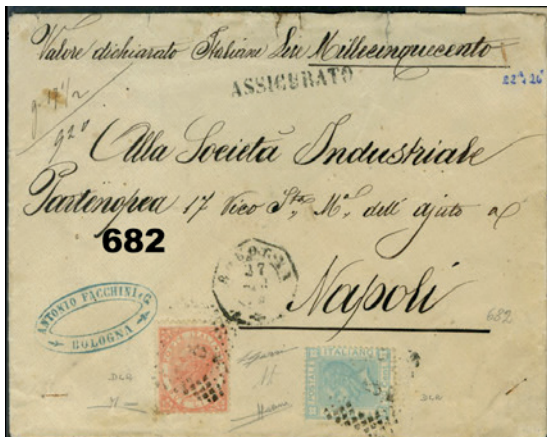 Valore dichiarato Italiane Lire Millecinquecento
ASSICURATO
Alla Società Industriale
Partenopea 17 Vico Sta. Ma. dell' ajuto a
682
BOLOGNA
Napoli
ANTONIO FACCHINI e C.
BOLOGNA
682
ITALIANO